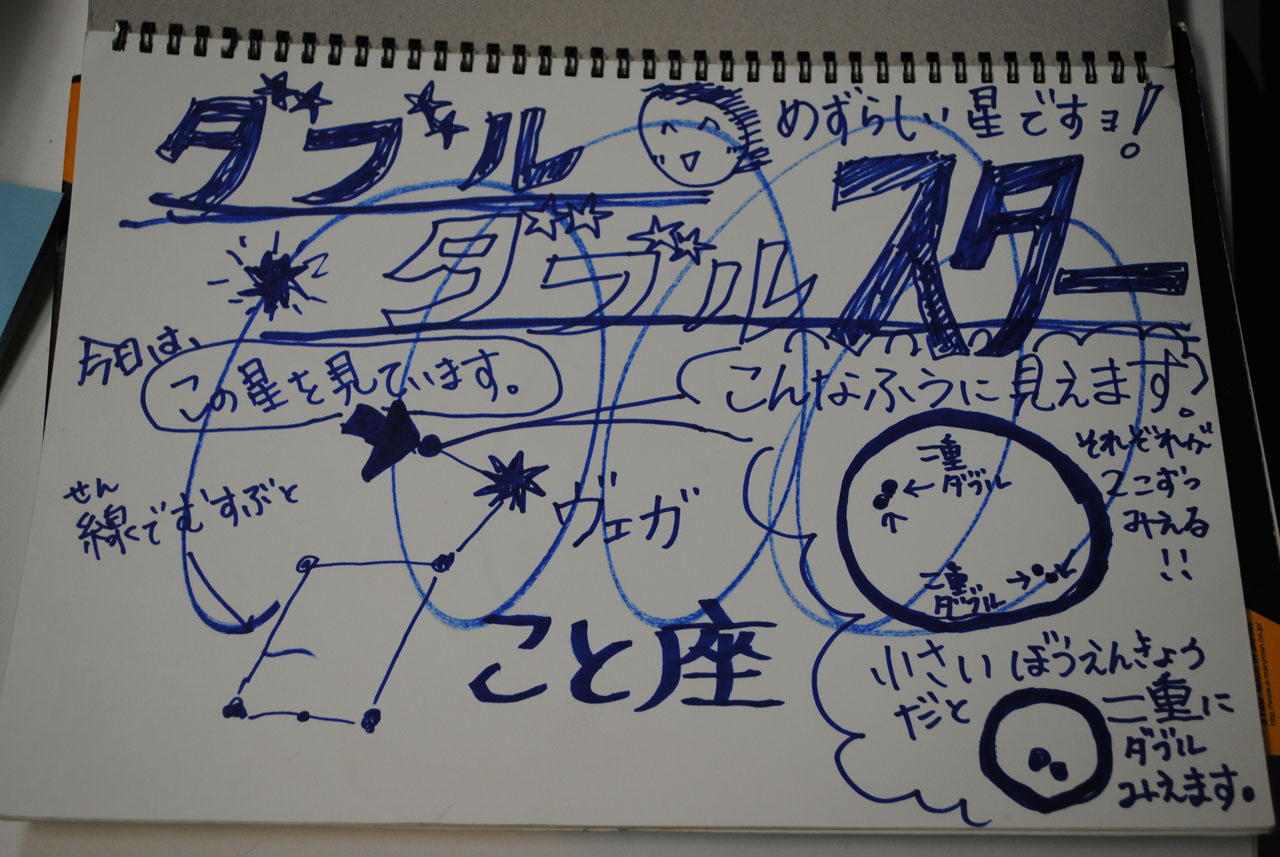 ダブル
めずらしい星ですョ!
ダブル
スター
今日は、
この星を見ています。
こんなふうに見えます。
せん
線でむすぶと
ヴェガ
こと座
二重
ダブル
それぞれが
2こずつ
みえる
!!
二重
ダブル
小さいぼうえんきょう
だと
二重に
ダブル
みえます。